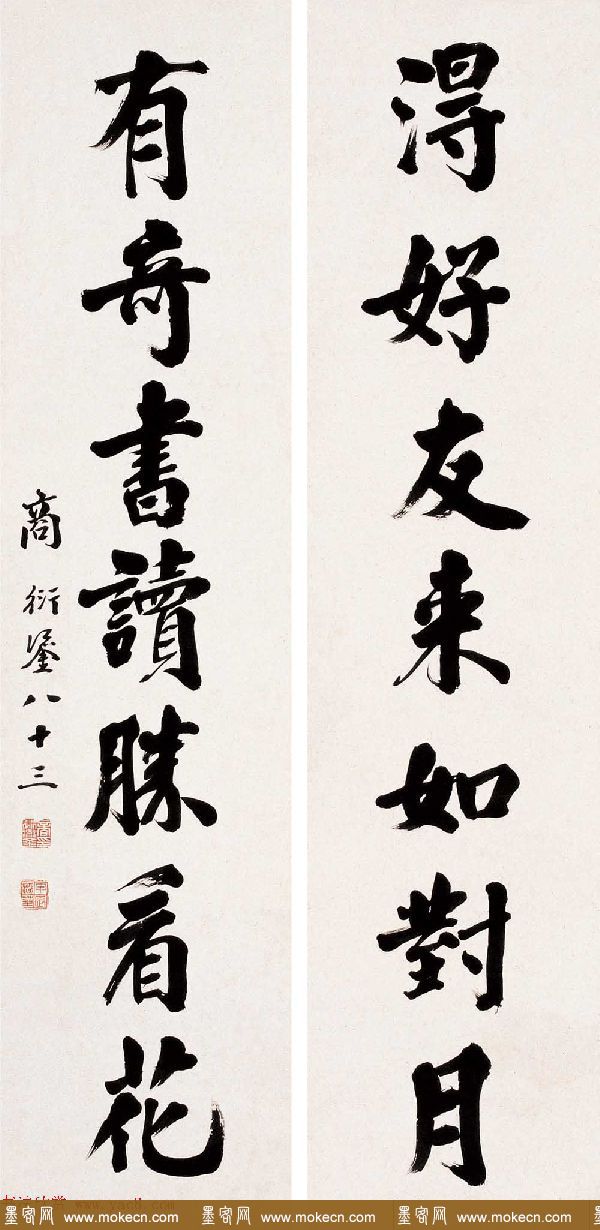 得好友来如對月
有奇書讀勝看花
商衍鎏八十三
墨客网 www.mokecn.com 墨客网 www.mokecn.com 墨客网 www.mokecn.com